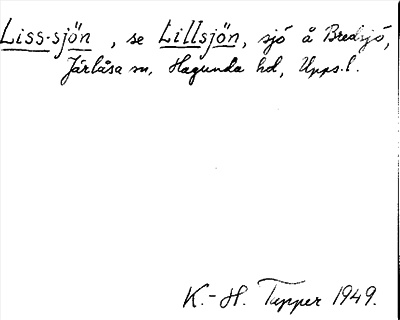 Liss-sjön, se Lillsjön, sjö å Bredsjö,
Järlåsa sn, Hagunda hd, Upps.l.
K.-H. Tepper 1949.